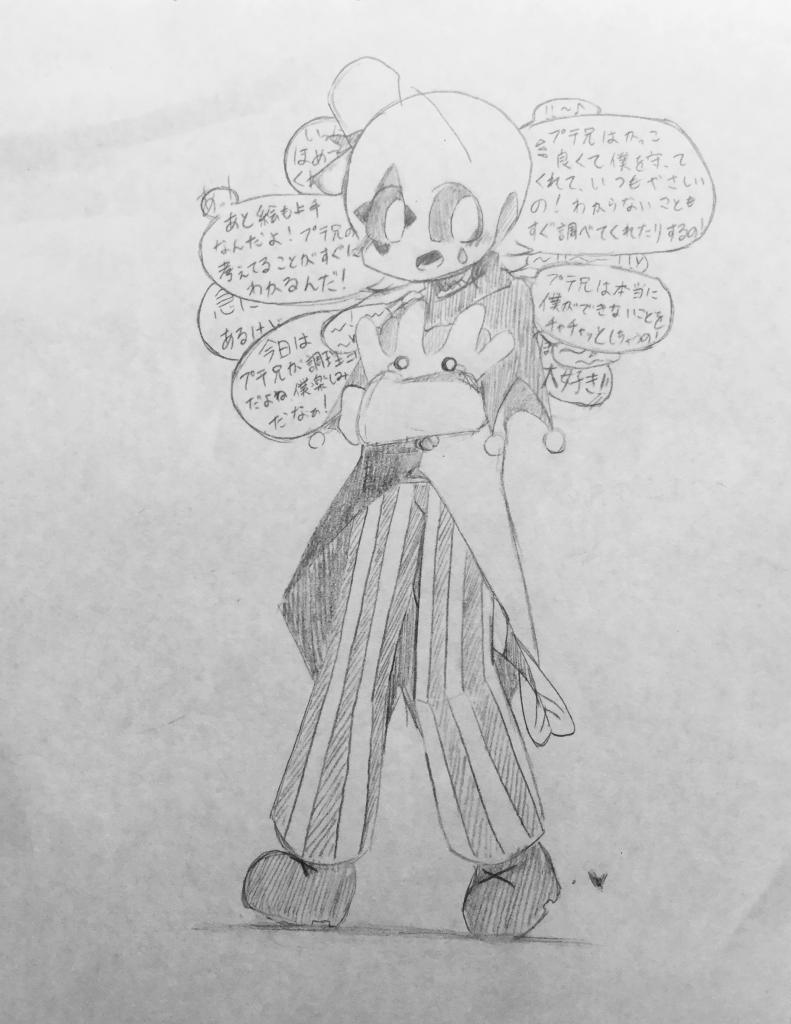 いっ
ほめて
くれ
あ
あと絵も上手
なんだよ！プテ兄の
考えてることがすぐに
わかるんだ！
急に
あるけど
今日は
プテ兄が調理
だよね 僕楽しみ
だなぁ！
プテ兄はかっこ
良くて僕を守って
くれて、いつもやさしい
の！わからないことも
すぐ調べてくれたりするの！
プテ兄は本当に
僕ができないことを
チャチャッとしちゃうの！
大好き!!